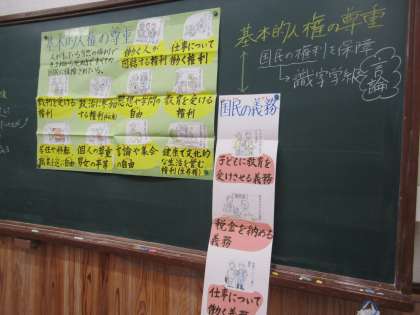 基本的人権の尊重
働く人が
団結する権利
仕事について
働く権利
裁判を受ける
権利
政治に参加
する権利
思想や学問の
自由
教育を受ける
権利
居住や移転、
職業を選ぶ自由
個人の尊重
男女の平等
言論や集会
の自由
健康で文化的
な生活を営む
権利(生存権)
国民の義務
子どもに教育を
受けさせる義務
税金を納める
義務
仕事について
働く義務
基本的人権の尊重
国民の権利を保障
識字学級
言論